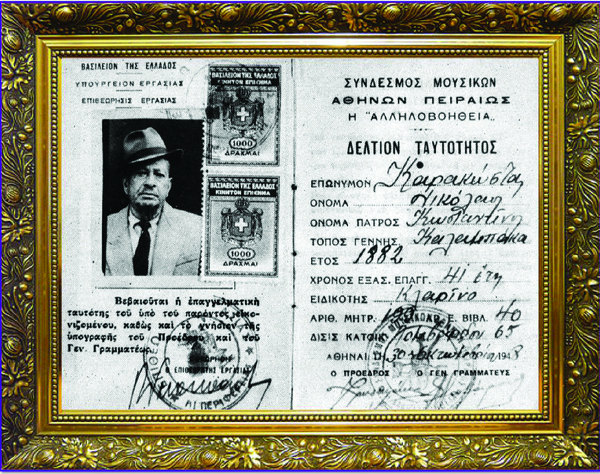 ΒΑΣΙΛΕΙΟΝ ΤΗΣ ΕΛΛΑΔΟΣ
ΥΠΟΥΡΓΕΙΟΝ ΕΡΓΑΣΙΑΣ
ΕΠΙΘΕΩΡΗΣΙΣ ΕΡΓΑΣΙΑΣ
ΒΑΣΙΛΕΙΟΝ ΤΗΣ ΕΛΛΑΔΟΣ
ΚΙΝΗΤΟΝ ΕΠΙΣΗΜΑ
1000
ΔΡΑΧΜΑΙ
ΒΑΣΙΛΕΙΟΝ ΤΗΣ ΕΛΛΑΔΟΣ
ΚΙΝΗΤΟΝ ΕΠΙΣΗΜΑ
1000
ΔΡΑΧΜΑΙ
Βεβαιοῦται ἡ ἐπαγγελματική
ταυτότης τοῦ ὑπὸ τοῦ παρόντος εἰκο-
νιζομένου, καθὼς καὶ τὸ γνήσιον τῆς
ὑπογραφῆς τοῦ Προέδρου καὶ τοῦ
Γεν. Γραμματέως.
ΕΠΙΘΕΩΡΗΤΗΣ ΕΡΓΑΣΙΑΣ
ΣΥΝΔΕΣΜΟΣ ΜΟΥΣΙΚΩΝ
ΑΘΗΝΩΝ ΠΕΙΡΑΙΩΣ
Η "ΑΛΛΗΛΟΒΟΗΘΕΙΑ"
ΔΕΛΤΙΟΝ ΤΑΥΤΟΤΗΤΟΣ
ΕΠΩΝΥΜΟΝ Καρακώστα
ΟΝΟΜΑ Νικόλαος
ΟΝΟΜΑ ΠΑΤΡΟΣ Κωσταντίνο
ΤΟΠΟΣ ΓΕΝΝΗΣ. Καλαμπάκα
ΕΤΟΣ 1882
ΧΡΟΝΟΣ ΕΞΑΣ. ΕΠΑΓΓ. 41 έτη
ΕΙΔΙΚΟΤΗΣ Κλαρίνο
ΑΡΙΘ. ΜΗΤΡ. Ε. ΒΙΒΛ. 40
ΔΙΣΙΣ ΚΑΤΟΙΚ. 65
ΑΘΗΝΑΙ 30 Οκτωβρίου 1948
Ο ΠΡΟΕΔΡΟΣ Ο ΓΕΝ ΓΡΑΜΜΑΤΕΥΣ